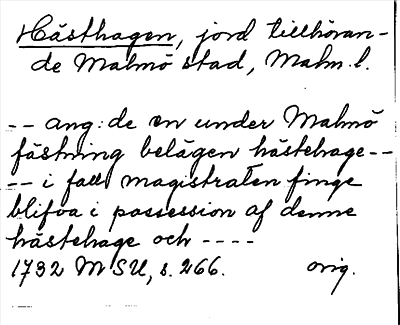 Hästhagen, jord tillhöran-
de Malmö stad, Malm. l.
-- ang: de en under Malmö
fästning belägen hästehage --
-- i fall magistraten finge
blifva i possession af denne
hästehage och ----
1732 MSU, s. 266. orig.